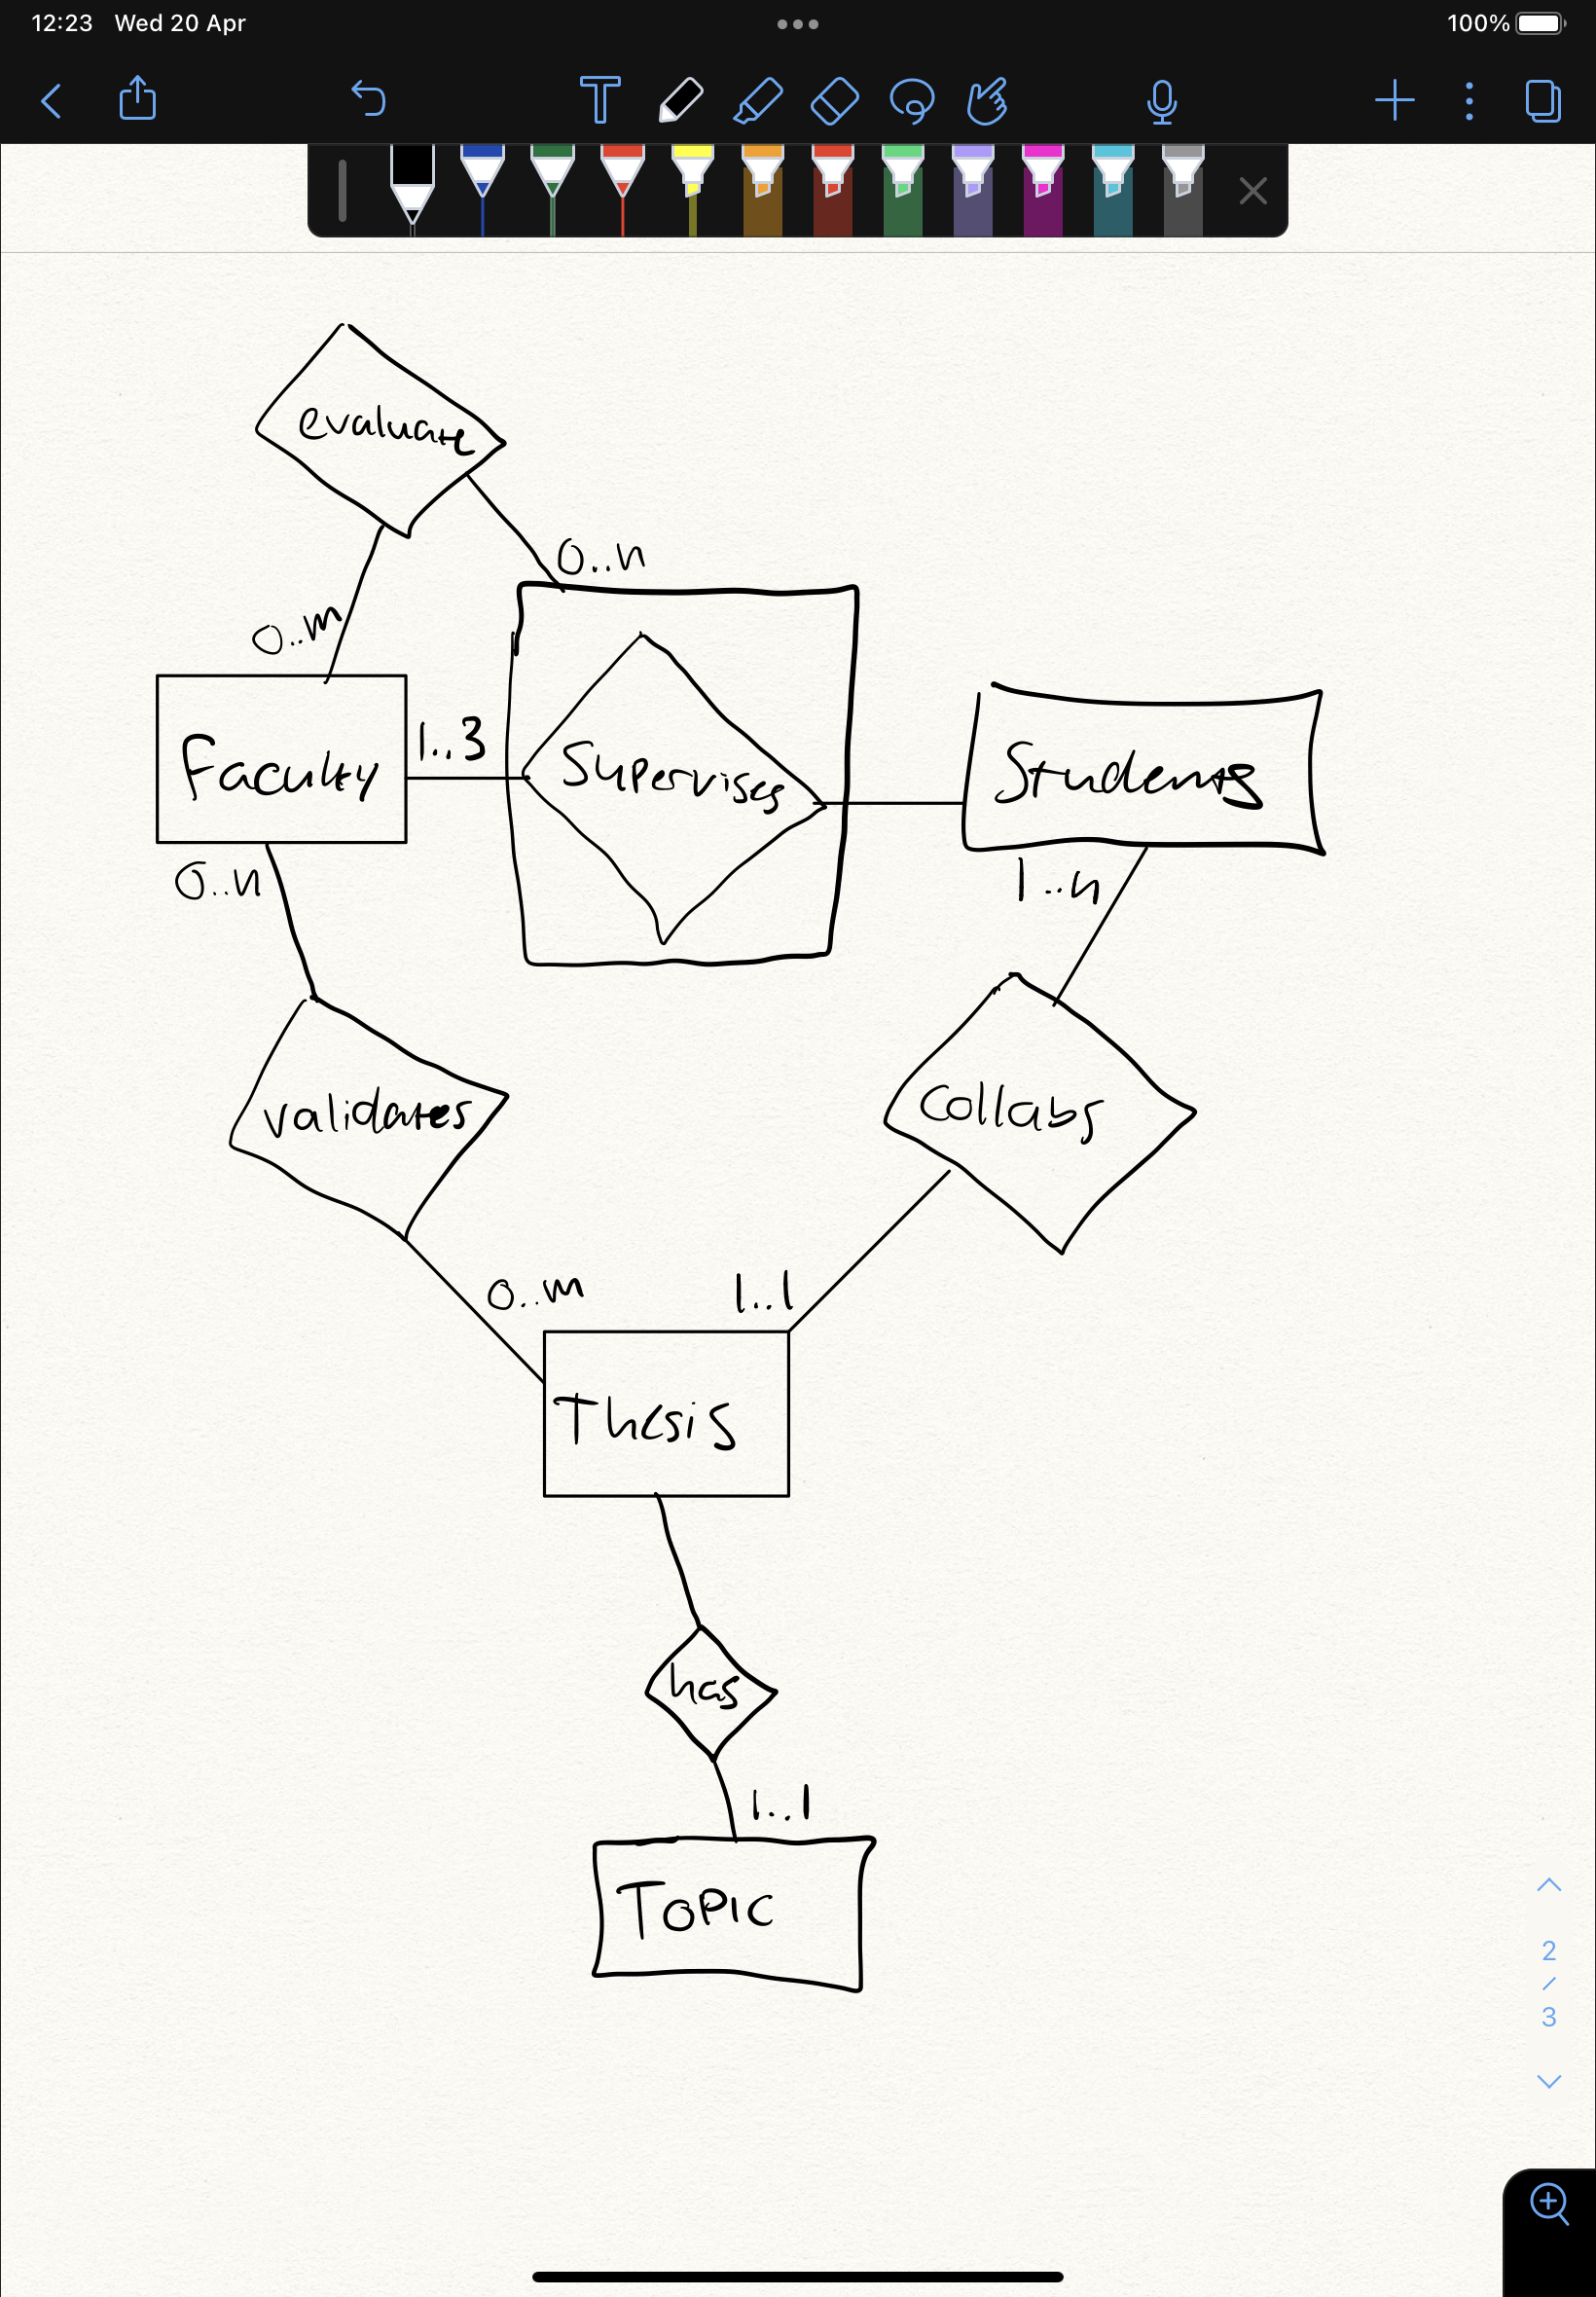 12:23 Wed 20 Apr
100%
T
evaluate
0..n
0..m
Faculty
1..3
Supervises
Students
0..n
1..n
validates
Collabs
0..m
1..1
Thesis
has
1..1
Topic
2
/
3